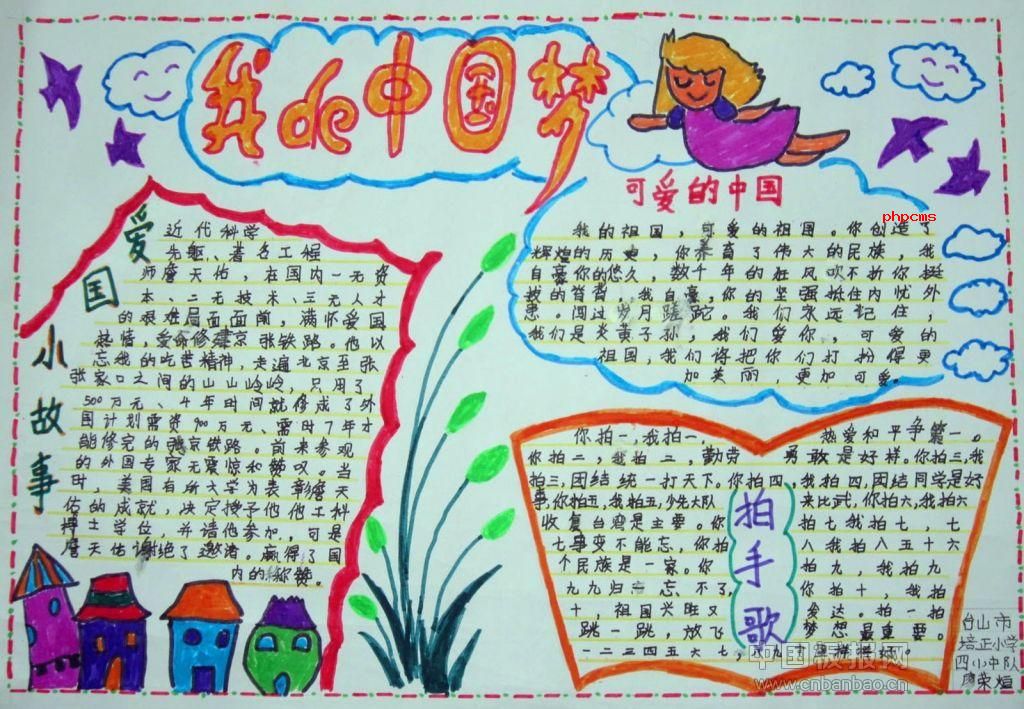 我de中国梦
爱国小故事
近代科学
先驱、著名工程
师詹天佑，在国内一无资
本、二无技术、三无人才
的艰难局面面前，满怀爱国
热情，受命修建京张铁路。他以
忘我的吃苦精神，走遍北京至张
张家口之间的山山岭岭，只用了
500万元、4年时间就修成了外
国计划需资900万元、需时7年才
能修完的京铁路。前来参观
的外国专家无震惊和叹。当
时，美国有所大学为表彰詹天
佑的成就，决定授予他他工科
博士学位，并请他参加，可是
詹天佑谢绝了邀请。赢得了国
内的称赞。
可爱的中国
phpcms
我的祖国，可爱的祖国。你创造了
辉煌的历史，你养育了伟大的民族，我
自豪你的悠久，数千年的狂风吹不折你挺
拔的脊背，我自豪，你的坚强抵住内忧外
患。闯过岁月蹉跎。我们永远记住，
我们是炎黄子孙，我们爱你，可爱的
祖国，我们将把你们打扮得更
加美丽，更加可爱。
拍手歌
你拍一，我拍一，
你拍二，我拍二，勤劳
拍三，团结统一打天下。你拍四
事，你拍五，我拍五，少先大队
收复台湾是主要。你
七事变不能忘，你拍
个民族是一家。你
九九归忘不了，
十，祖国兴旺又
跳一跳，放飞
一二三四五六七，
热爱和平争第一。
勇敢是好样。你拍三，我
，我拍四，团结同学是好
来比武，你拍六，我拍六
拍七我拍七，七
八我拍八五十六
拍九，我拍九
你拍十，我拍
发达。拍一拍
梦想最重要。
台山市
培正小学
四(1)中队
荣烜
中国板报网
www.cnbanbao.cn